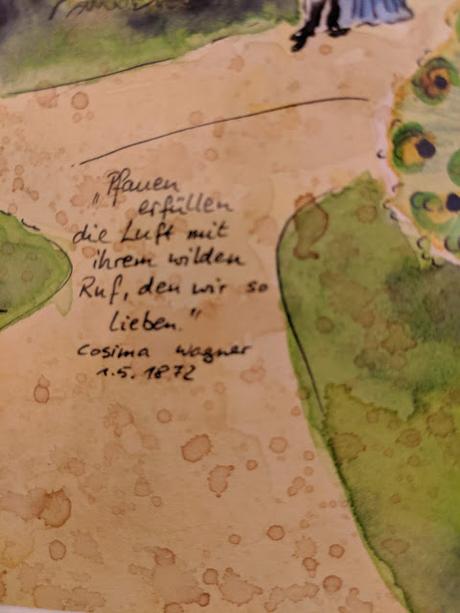 "Pfauen
erfüllen
die Luft mit
ihrem wilden
Ruf, den wir so
lieben."
Cosima Wagner
1.5.1872